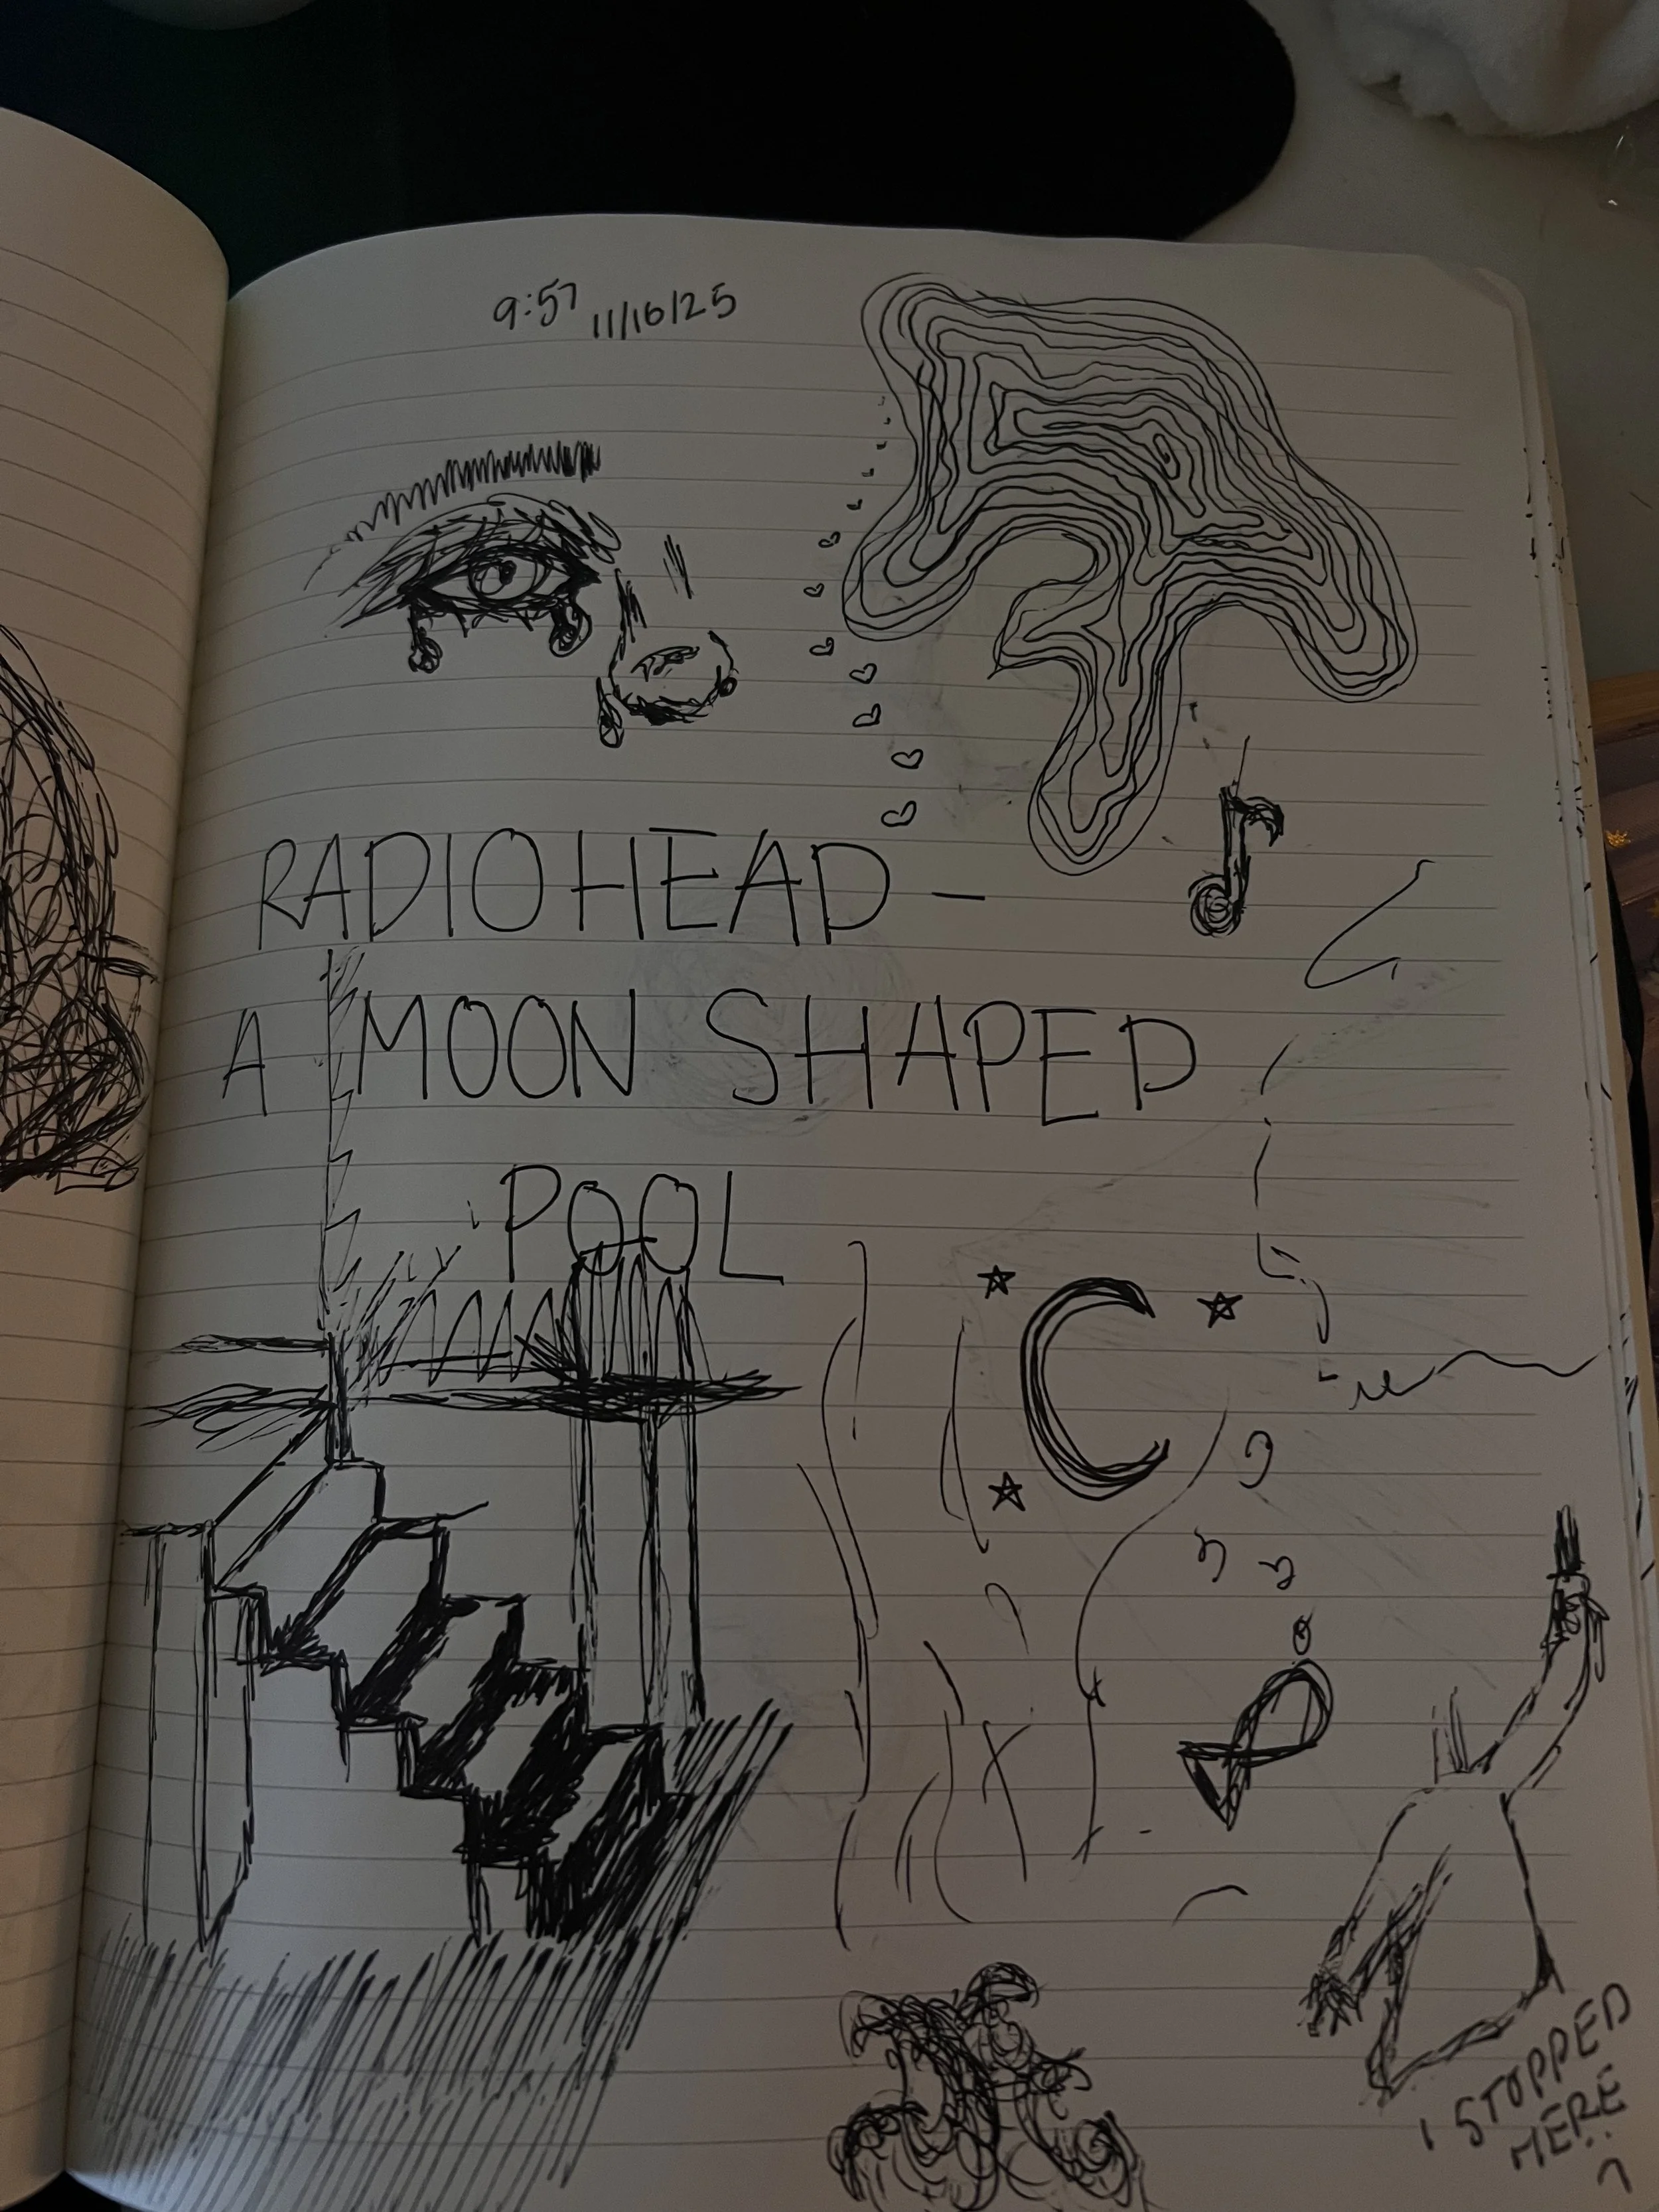 9:57 11/16/25
RADIOHEAD -
A MOON SHAPED
POOL
I STOPPED
HERE